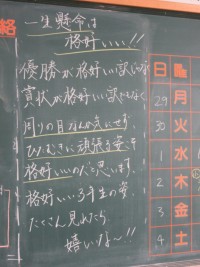 絡
一生懸命は
格好いい!!
優勝が格好いい訳じゃなく
賞状が格好いい訳でもなく
周りの目なんか気にせず、
ひたむきに頑張る姿って
格好いいのだと思います。
格好いい3年生の姿
たくさん見れたら
嬉しいな〜!!
日
29 月
30 火
1 水
2 木
3 金
4 土